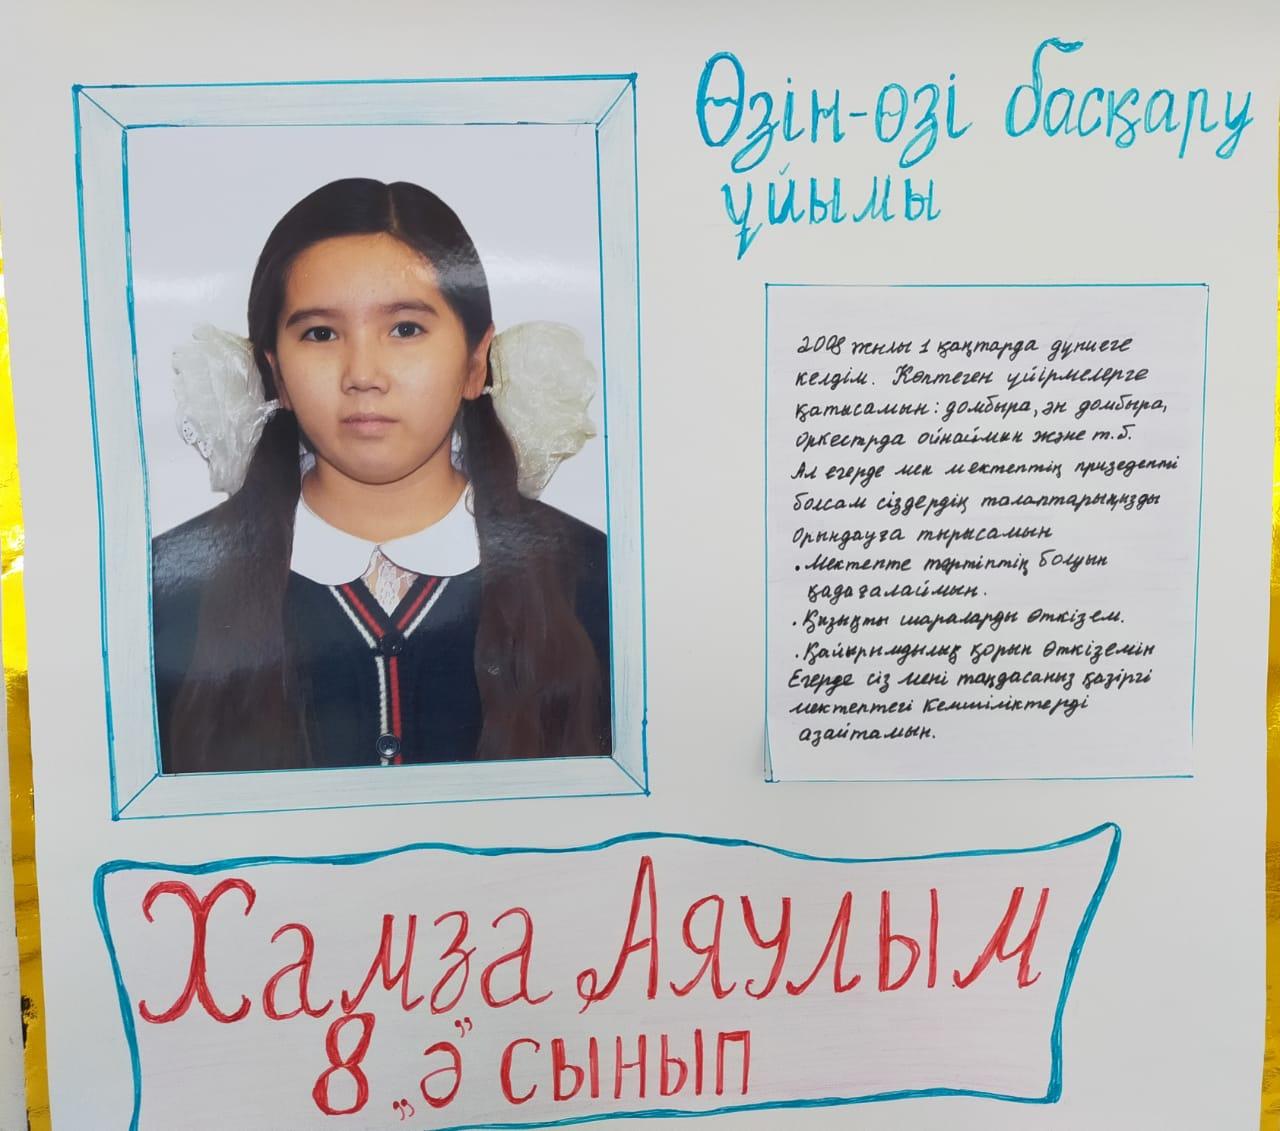 Өзін-өзі басқару
ұйымы
2008 жылы 1 қаңтарда дүниеге
келдім. Көптеген үйірмелерге
қатысамын: домбыра, ән домбыра,
оркестрда ойнаймын және т.б.
Ал егерде мен мектептің призеденті
болсам сіздердің талаптарыңызды
орындауға тырысамын
. Мектепте тәртіптің болуын
қадағалаймын.
. Қызықты шараларды өткізем.
. Қайырымдылық қорын өткіземін
Егерде сіз мені таңдасаңыз қазіргі
мектептегі кемшіліктерді
азайтамын.
Хамза Аяулым
8 „ә” сынып